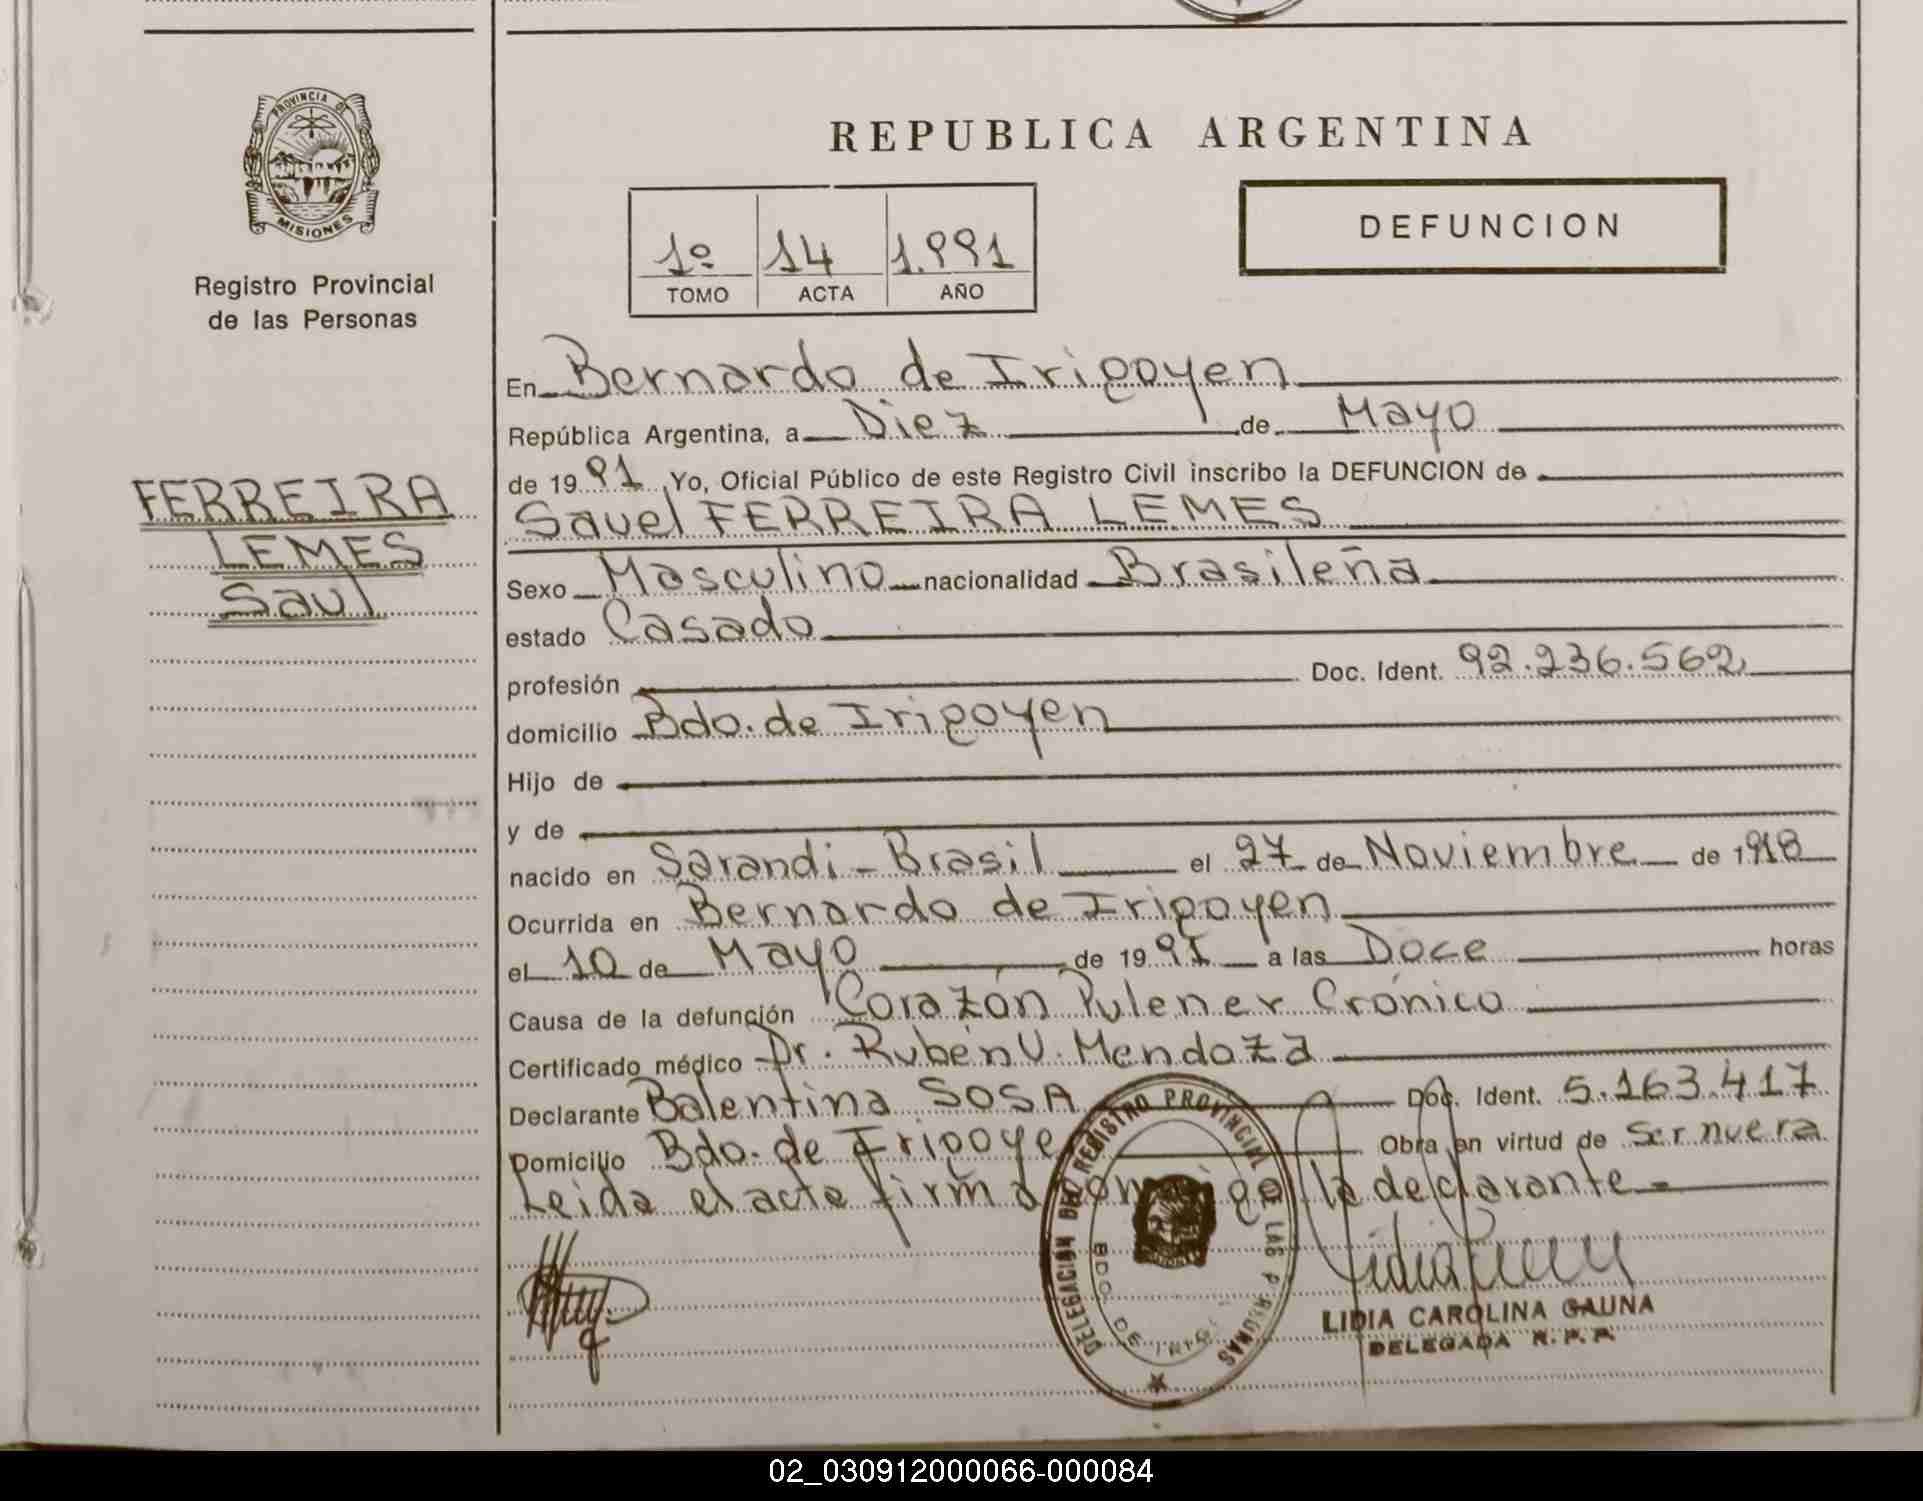 PROVINCIA DE
MISIONES
Registro Provincial
de las Personas
FERREIRA
LEMES
Saul
REPUBLICA ARGENTINA
1º 14 1.991
TOMO ACTA AÑO
DEFUNCION
En Bernardo de Irigoyen
República Argentina, a Diez de Mayo
de 1991 Yo, Oficial Público de este Registro Civil inscribo la DEFUNCION de
Sauel FERREIRA LEMES
Sexo Masculino nacionalidad Brasileña
estado Casado
profesión Doc. Ident. 92.236.562
domicilio Bdo. de Irigoyen
Hijo de
y de
nacido en Sarandi - Brasil el 27 de Noviembre de 1918
Ocurrida en Bernardo de Irigoyen
el 10 de Mayo de 1991 a las Doce horas
Causa de la defunción Corazón Pulener Crónico
Certificado médico Dr. Rubén V. Mendoza
Declarante Balentina SOSA Doc. Ident. 5.163.417
Domicilio Bdo. de Irigoye Obra en virtud de ser nuera
Leida el acta firma conmigo la declarante
DELEGACIÓN DEL REGISTRO PROVINCIAL DE LAS PERSONAS
BDO. DE IRIGOYEN
LIDIA CAROLINA GAUNA
DELEGADA R.P.P.
02_030912000066-000084